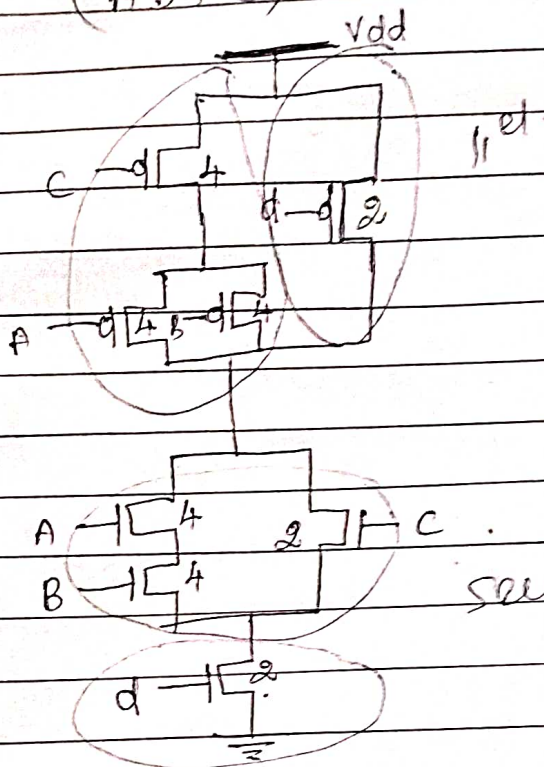 Vdd
C 4
d 2
A 4 B 4
A 4 2 C
B 4
d 2